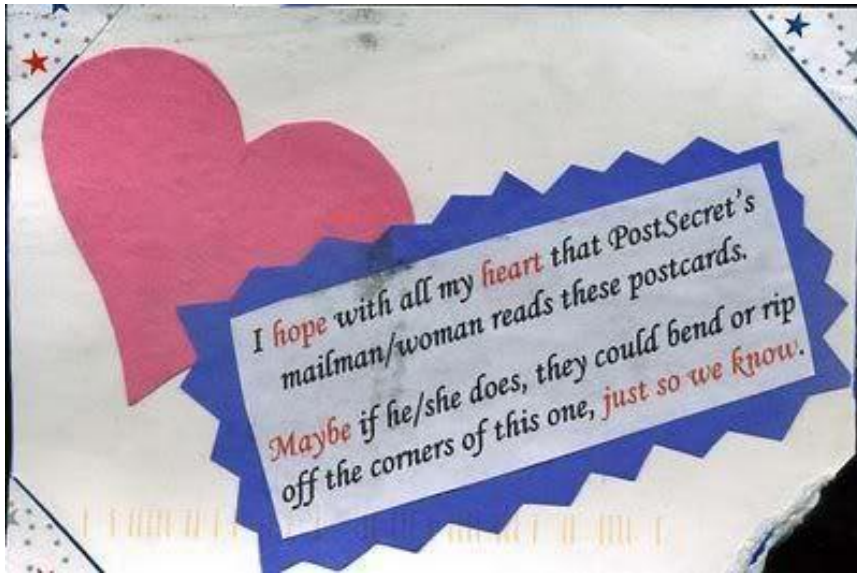 I hope with all my heart that PostSecret's
mailman/woman reads these postcards.
Maybe if he/she does, they could bend or rip
off the corners of this one, just so we know.